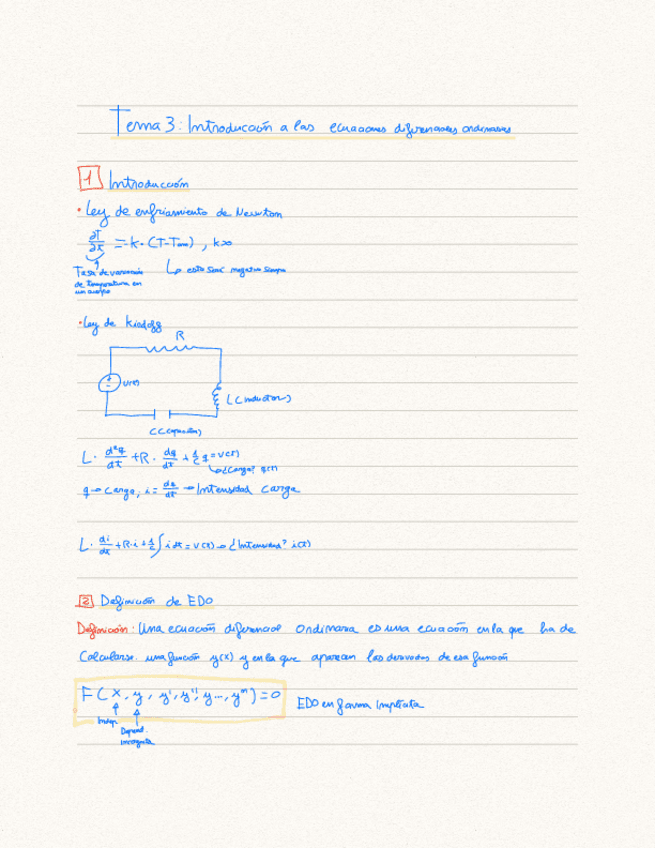 Tema 3: Introducción a las ecuaciones diferenciales ordinarias
1 Introducción
• Ley de enfriamiento de Newton
∂T/∂t = -k·(T-Tₐₘ), k>0
Tasa de variación de temperatura en un cuerpo
↳ esto será negativo siempre
• Ley de Kirchoff
R
V(t)
L (inductor)
C (capacitor)
L· d²q/dt + R· dq/dt + 1/C q = V(t)
↳ ¿Carga? q(t)
q → carga, i = dq/dt → Intensidad carga
L· di/dt + R·i + 1/C ∫ i dt = V(t) → ¿Intensidad? i(t)
2 Definición de EDO
Definición: Una ecuación diferencial ordinaria es una ecuación en la que ha de
calcularse una función y(x) y en la que aparecen las derivadas de esa función
F(x, y, y', y'', y..., yⁿ) = 0 EDO en forma implícita
Indep. Depend.
incógnita